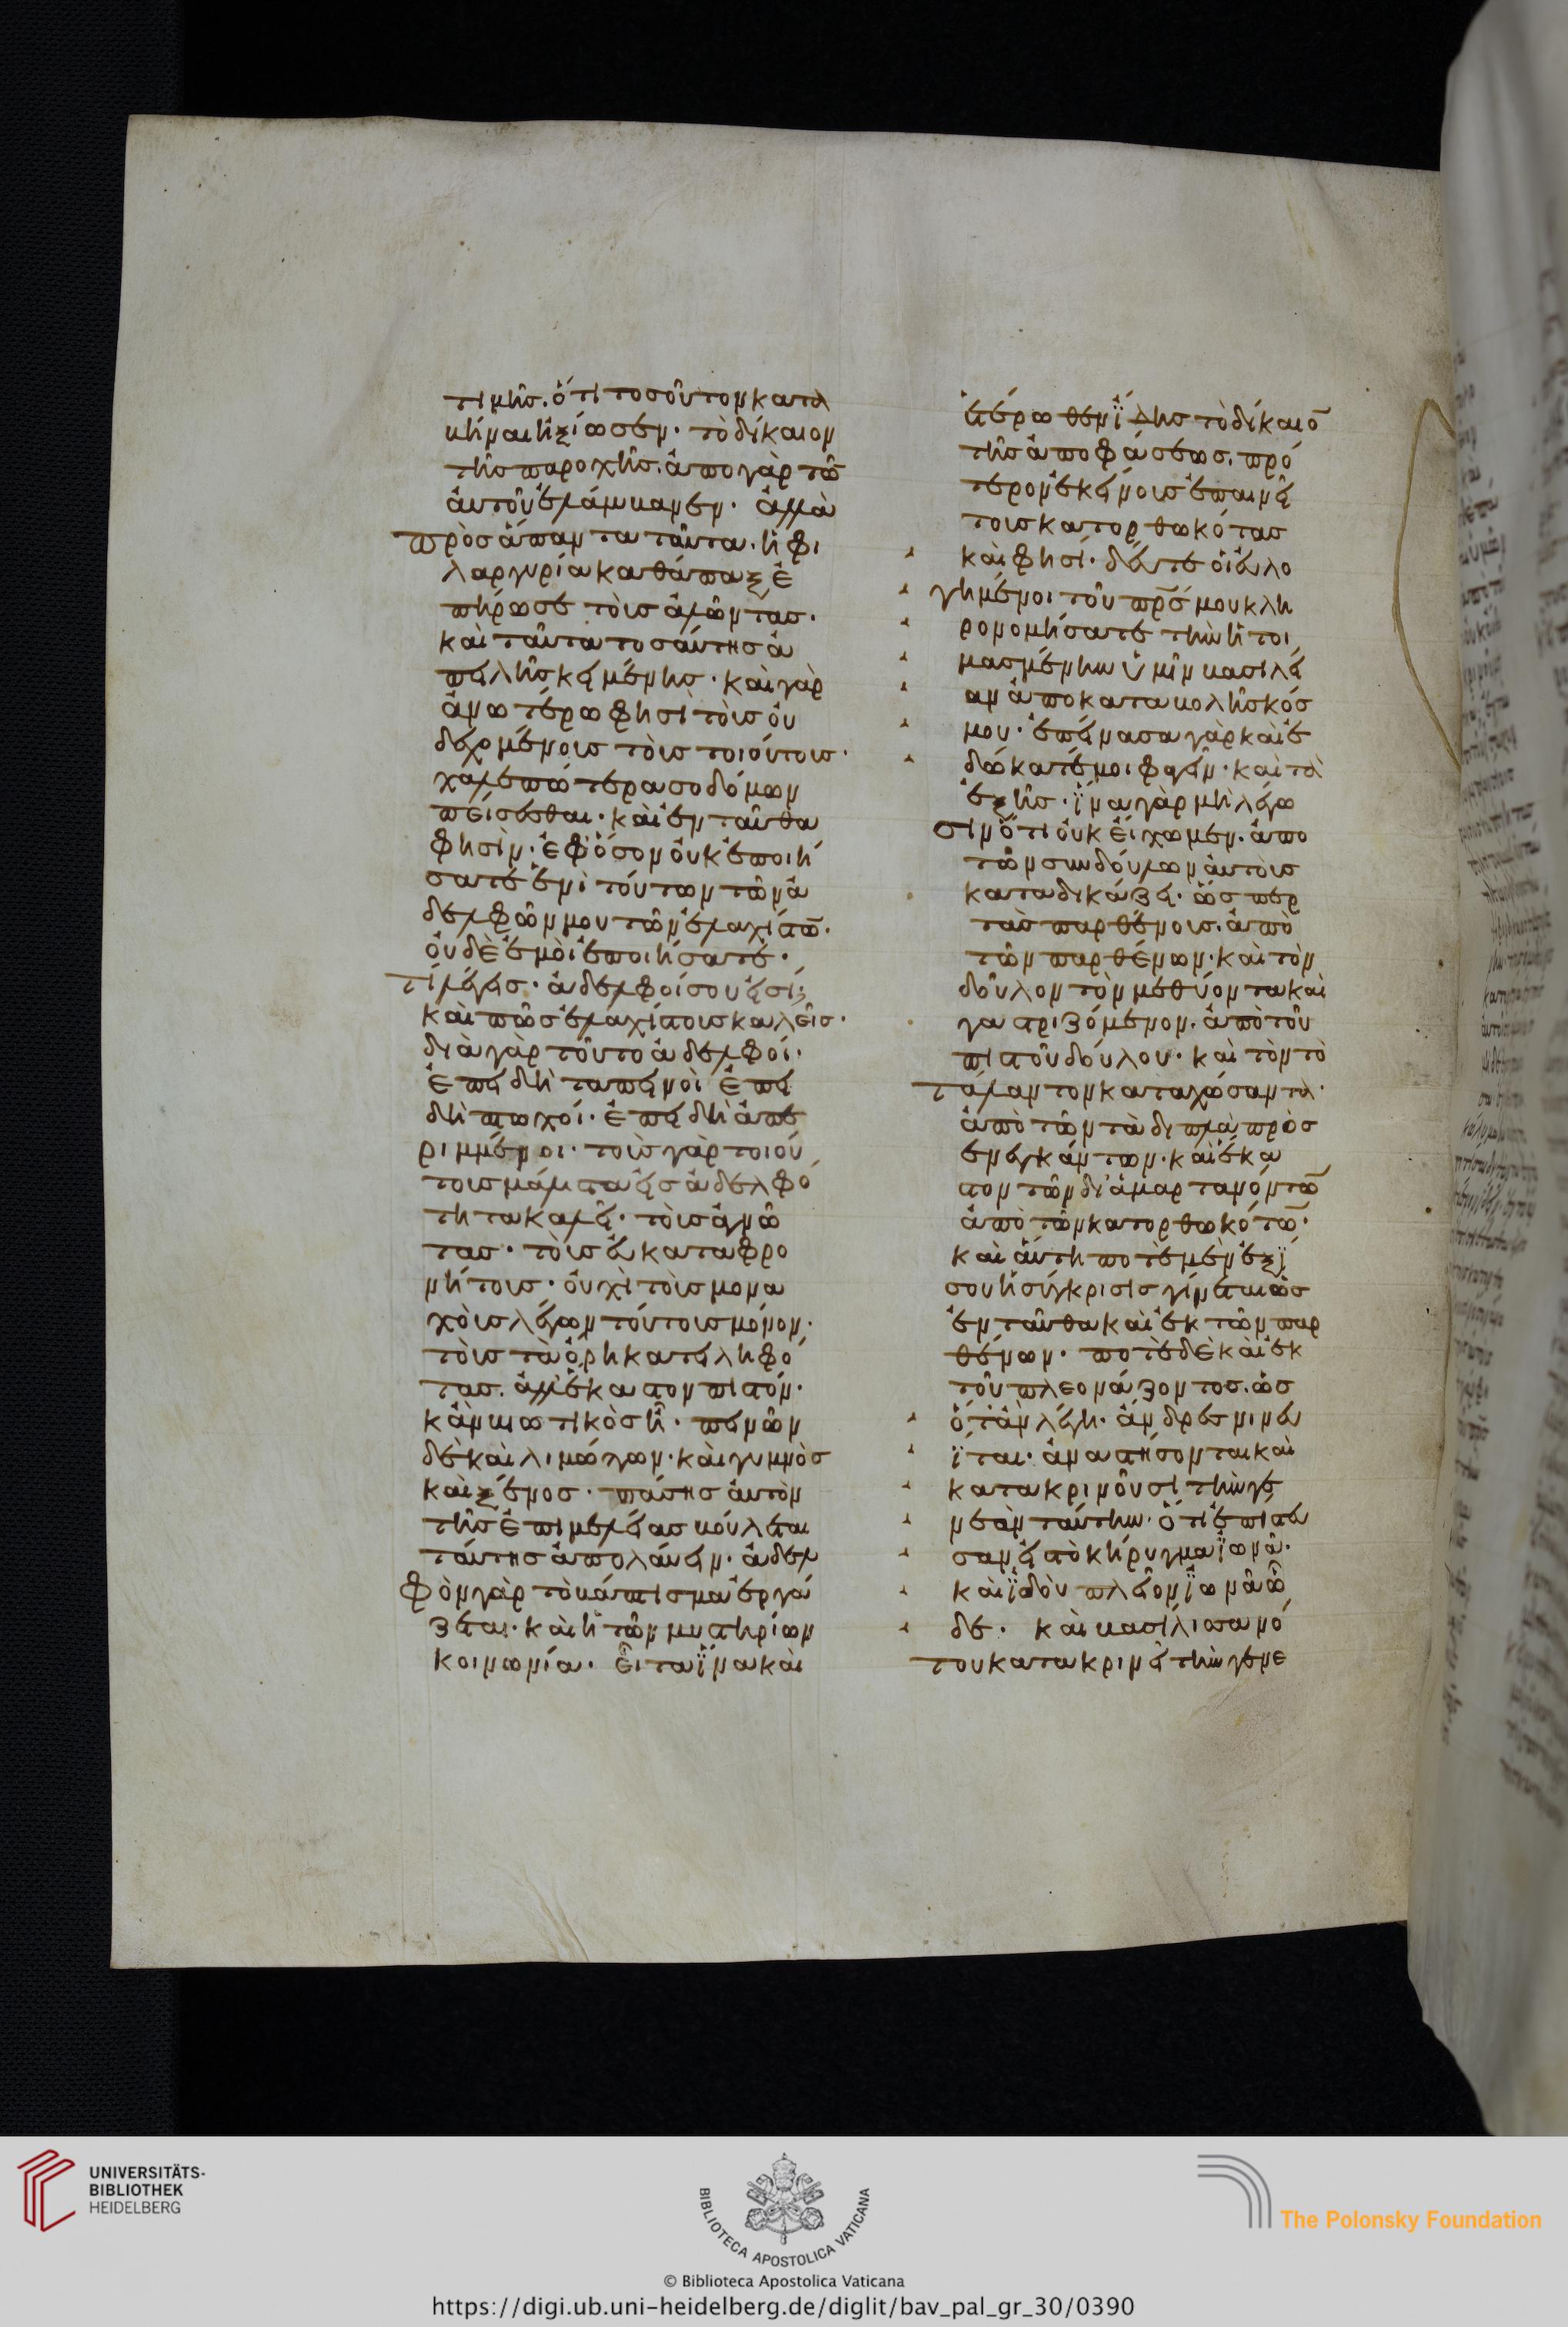 τιμῆσ. ὅτι τοσοῦτον κατα
βῆναι ἠξίωσεν· τὸ δίκαιον
τῆσ παροχῆσ. ἀπο γὰρ τῶ̅
ἀυτοῦ ἐλάμβανεν· ἀλλὰ
πρὸσ ἅπαντα ταῦτα. ἡ φι
λαργυρία καθάπαξ ἐ
πήρωσε τοὺσ ἁλῶντασ·
καὶ ταῦτα τοσάυτησ ἀ
πειλῆσ κειμένησ· καὶ γὰρ
ἀνωτέρω φησὶ τοὺσ ὀυ
δεχομένουσ τοὺσ τοιούτουσ·
χαλεπώτερα σοδόμων
πείσεσθαι· καὶ ἐνταῦθα
φησὶν· ἐφ' ὅσον ὀυκ ἐποιή
σατε ἑνὶ τούτων τῶν ἀ
δελφῶν μου τῶν ἐλαχίστω̅·
ὀυδὲ ἐμοὶ ἐποιήσατε·
τί λέγεισ· ἀδελφοί σου εἰσί;
καὶ πῶσ ἐλαχίστουσ καλεῖσ·
διὰ γὰρ τοῦτο ἀδελφοί·
ἐπειδὴ ταπεινοὶ ἐπει
δὴ πτωχοί· ἐπειδὴ ἀπε
ριμμένοι· τοὺσ γὰρ τοιού
τουσ μάλιστα εἰσ ἀδελφό
τητα καλεῖ· τοὺσ ἀγνῶ
τασ· τοὺσ ἐυκαταφρο
νήτουσ· ὀυχὶ τοὺσ μονα
χοὺσ λέγων τούτουσ μόνον·
τοὺσ τὰ ὄρη κατειληφό
τασ. ἀλλ' ἕκαστον πιστόν·
κἂν βιωτικὸσ ἦ· πεινῶν
δὲ καὶ λιμώγων· καὶ γυμνὸσ
καὶ ξένοσ· πάσησ ἀυτὸν
τῆσ ἐπιμελείασ βούλεται
ταύτησ ἀπολάυειν· ἀδελ
φὸν γὰρ τὸ βάπτισμα ἐργά
ζεται· καὶ ἡ τῶν μυστηρίων
κοινωνία· εἶτα ἵνα καὶ
ἑτέρωθεν ἴδησ τὸ δίκαιο̅
τῆσ ἀποφάσεωσ. πρό
τερον ἐκείνουσ ἐπαινεῖ
τουσ κατορθωκότασ
καὶ φησί· δεῦτε οἱ ἐυλο
γημένοι τοῦ πρ̅σ μου κλη
ρονομήσατε τὴν ἡτοι
μασμένην ὑμῖν βασιλεί
αν ἀπο καταβολῆσ κόσ
μου· ἐπείνασα γὰρ καὶ ἐ
δώκατέ μοι φαγεῖν· καὶ τὰ
ἑξῆσ· ἵνα γὰρ μὴ λέγω
σιν ὅτι ὀυκ εἴχωμεν. ἀπο
τῶν συνδούλων ἀυτοὺσ
καταδικάζει· ὥσπερ
τὰσ παρθένουσ. ἀπὸ
τῶν παρθένων· καὶ τὸν
δοῦλον τὸν μεθύοντα καὶ
γαστριζόμενον. ἀπὸ τοῦ
πιστοῦ δούλου· καὶ τὸν τὸ
τάλαντον καταχώσαντα·
ἀπὸ τῶν τὰ διπλὰ προσ
ενεγκάντων· καὶ ἕκα
στον τῶν δι' ἁμαρτανόντω̅
ἀπὸ τῶν κατορθωκότω̅·
καὶ ἀύτη ποτὲ μὲν ἐξ ἴ
σου ἡ σύγκρισισ γίνεται ὡσ
ἐνταῦθα καὶ ἐκ τῶν παρ
θένων· ποτὲ δὲ καὶ ἐκ
τοῦ πλεονάζοντοσ. ὡσ
ὅταν λέγη· ἄνδρεσ νινευ
ῖται· ἀναστήσονται καὶ
κατακρινοῦσι τὴν γε
νεὰν ταύτην· ὅτι ἐπίστευ
σαν εἰσ τὸ κήρυγμα ἰωνᾶ·
καὶ ἰδοὺ πλεῖον ἰωνᾶ ὧ
δε· καὶ βασίλισσα νό
του κατακρινεῖ τὴν γενε
UNIVERSITÄTS-
BIBLIOTHEK
HEIDELBERG
BIBLIOTECA APOSTOLICA VATICANA
The Polonsky Foundation
© Biblioteca Apostolica Vaticana
https://digi.ub.uni-heidelberg.de/diglit/bav_pal_gr_30/0390